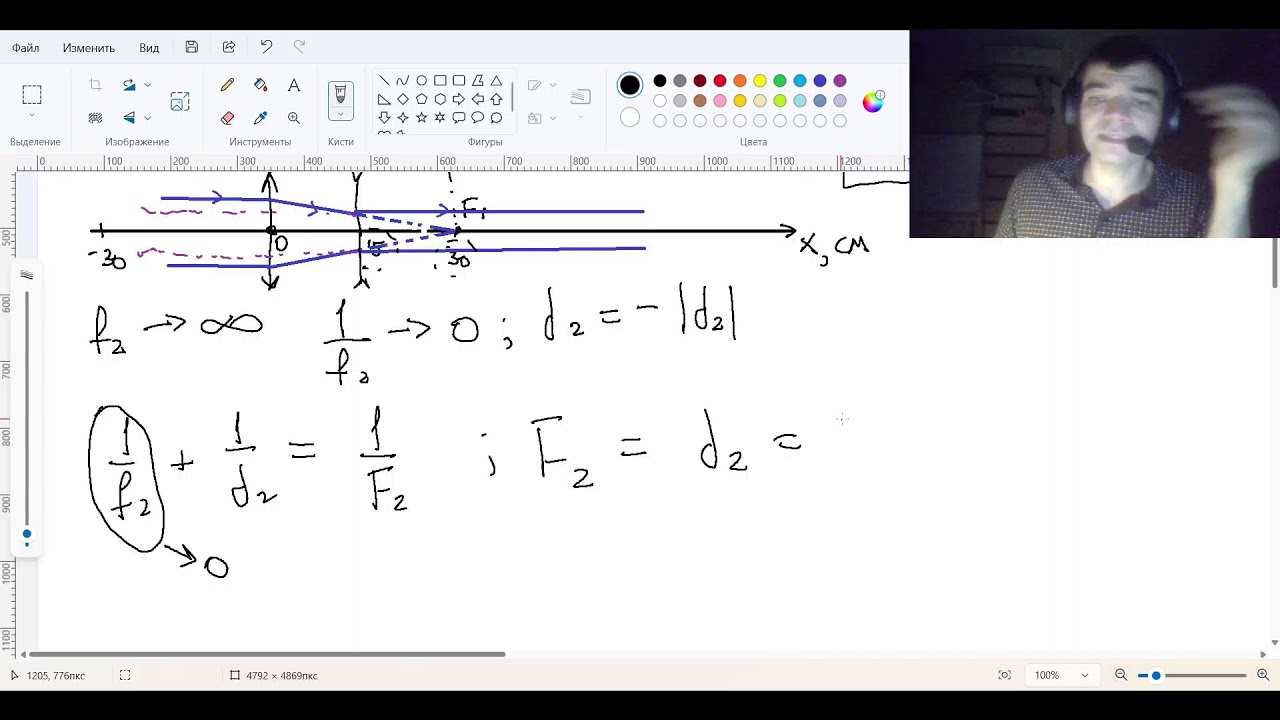 Файл Изменить Вид
Выделение Изображение Инструменты Кисти Фигуры Цвета
0 100 200 300 400 500 600 700 800 900 1000 1100 1200
500
600
700
800
900
1000
1100
F₁
-30 0 15 30 X, см
f₂ → ∞ 1/f₂ → 0 ; d₂ = - |d₂|
1/f₂ + 1/d₂ = 1/F₂ ; F₂ = d₂ =
→ 0
1205, 776пкс 4792 × 4869пкс 100%